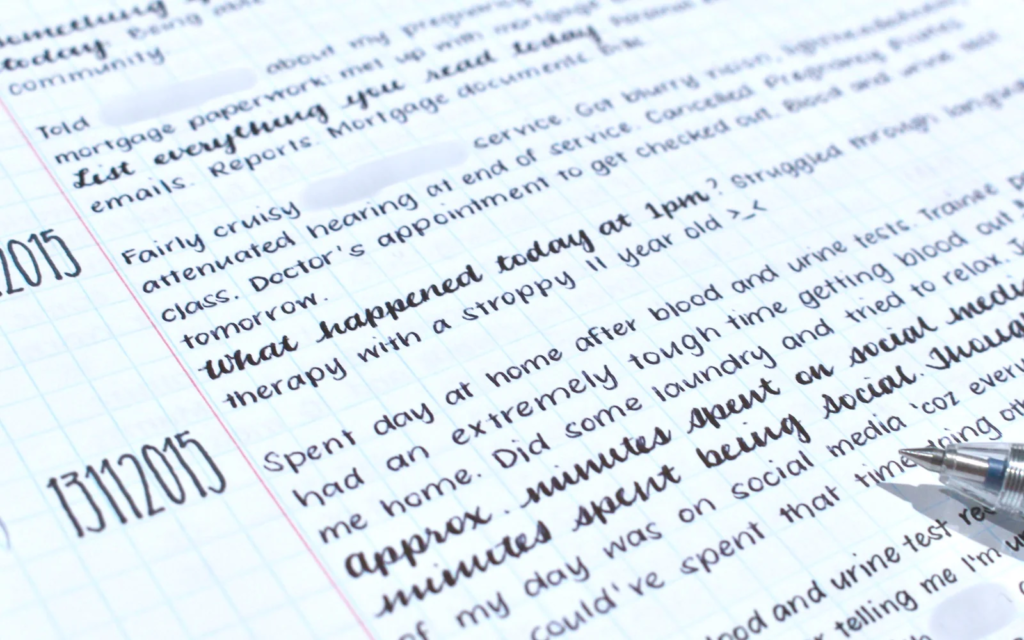 something
today. Being
community.
Told about my pregnancy
mortgage paperwork; met up with mortgage
List everything you read today
emails. Reports. Mortgage documents.
2015
Fairly cruisy service. Got blurry vision, lightheadedness
attenuated hearing at end of service. Cancelled Pregnancy Pilates
class. Doctor's appointment to get checked out. Blood and urine test
tomorrow.
What happened today at 1pm? Struggled through language
therapy with a stroppy 11 year old >_<
13112015
Spent day at home after blood and urine tests. Trainee
had an extremely tough time getting blood out
me home. Did some laundry and tried to relax.
approx. minutes spent on social media
minutes spent being social. Though
of my day was on social media 'coz every
could've spent that time doing
blood and urine test
telling me I'm